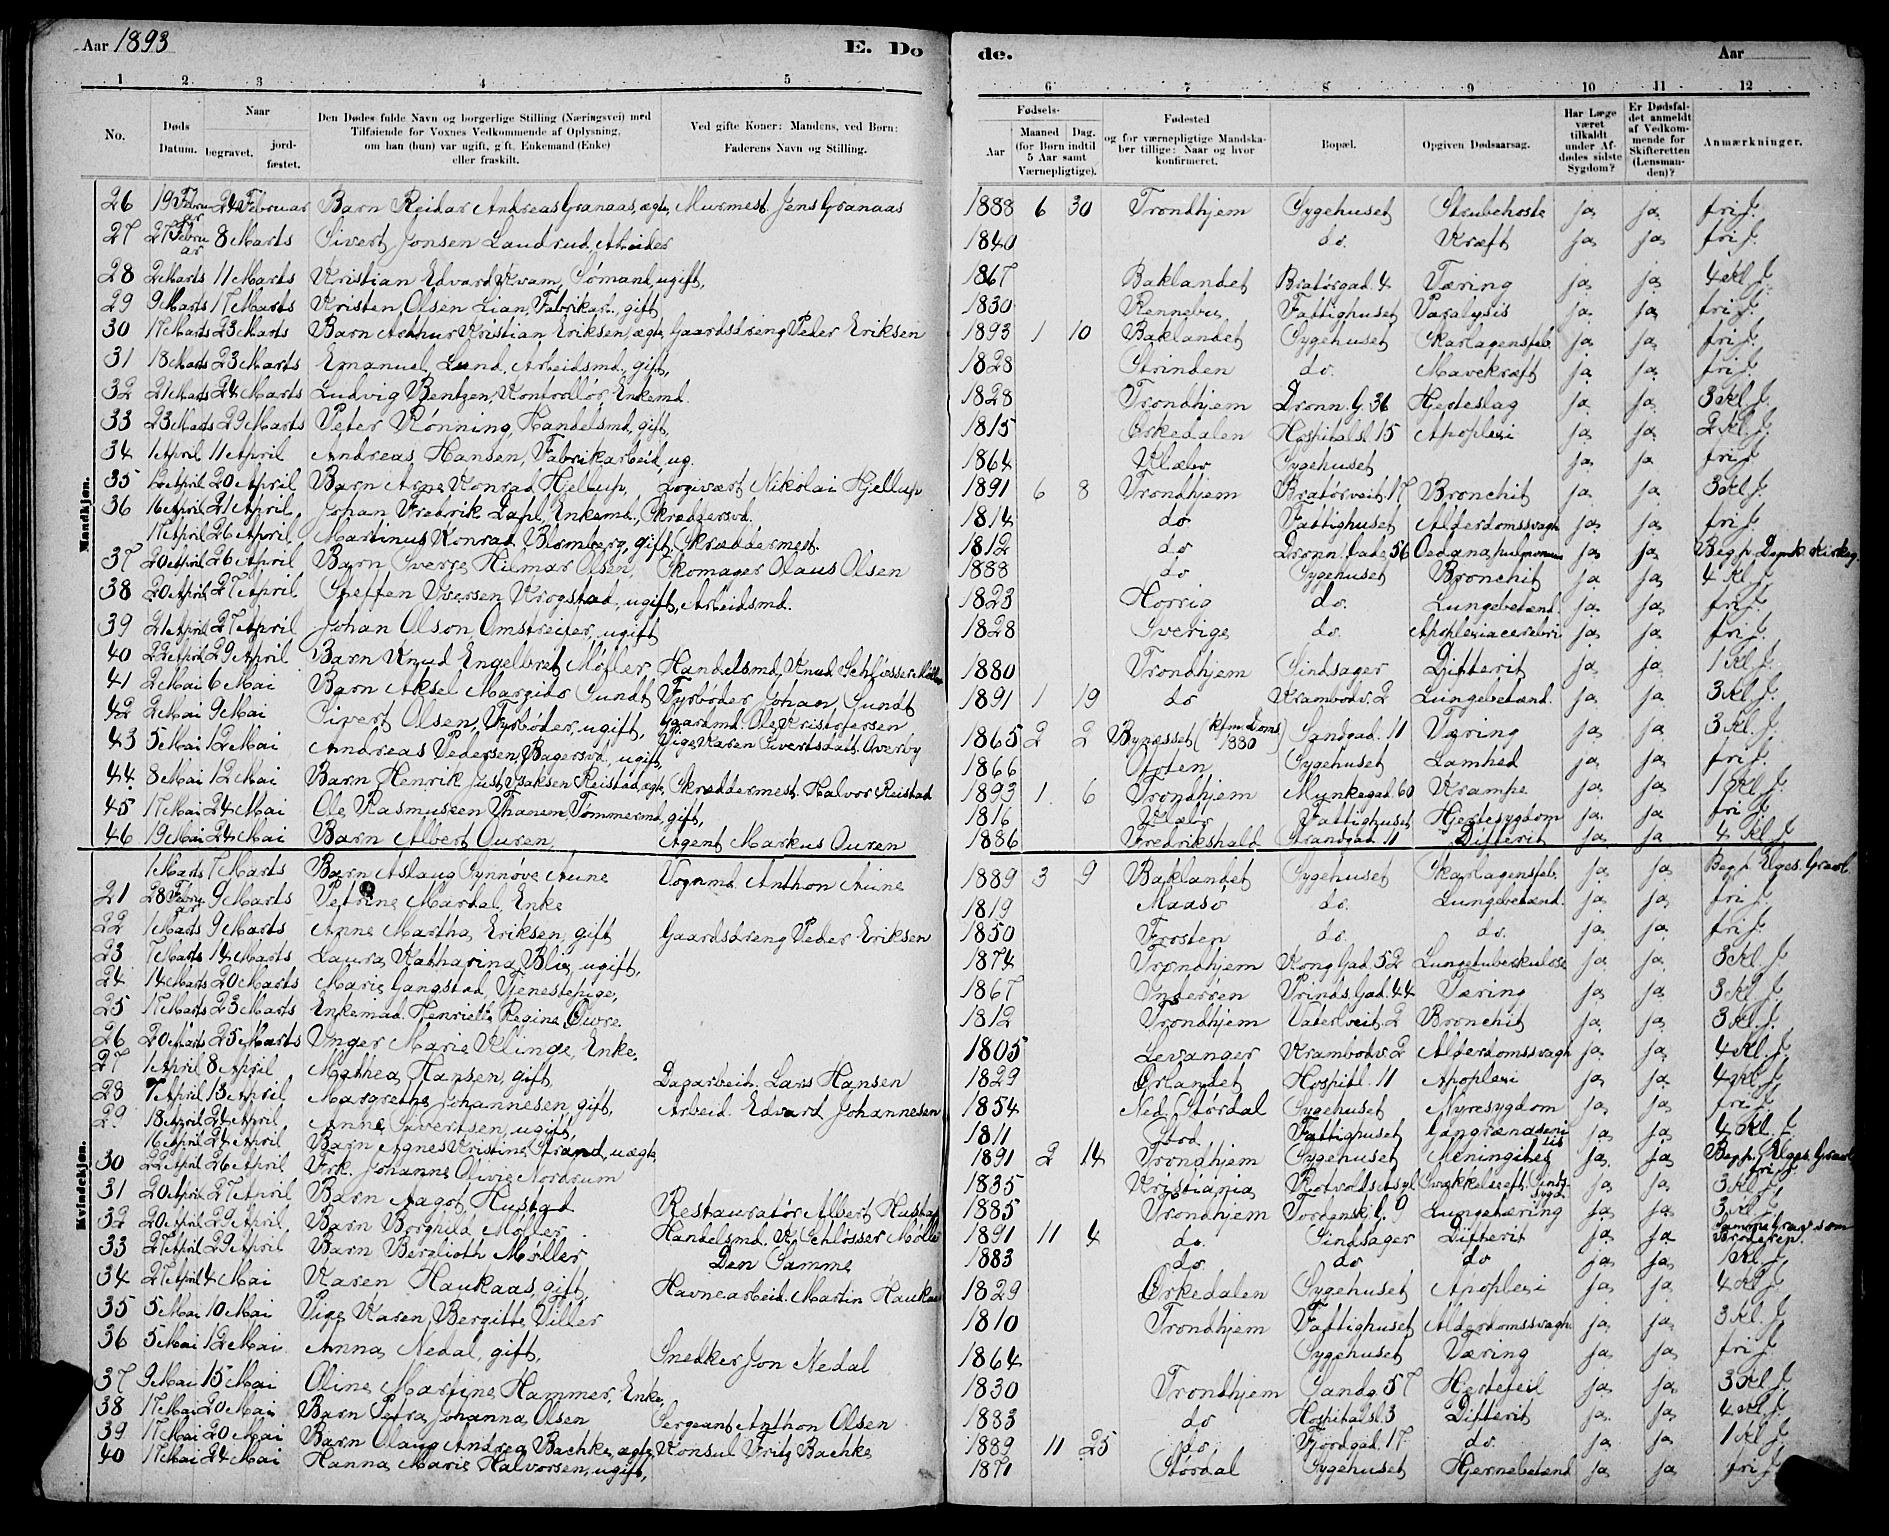 Aar 1893
E. Do de.
Aar
1 2 3 4 5 6 7 8 9 10 11 12
No.
Døds Datum.
Naar
begravet.
jord-fæstet.
Den Dødes fulde Navn og borgerlige Stilling (Næringsvei) med
Tilføiende for Voxnes Vedkommende af Oplysning,
om han (hun) var ugift, gift, Enkemand (Enke)
eller fraskilt.
Ved gifte Koner: Mandens, ved Børn:
Faderens Navn og Stilling.
Fødsels-
Aar
Maaned Dag.
(for Børn indtil
5 Aar samt
Værnepligtige).
Fødested
og for værnepligtige Mandska-
ber tillige: Naar og hvor
konfirmeret.
Bopæl.
Opgiven Dødsaarsag.
Har Læge
været
tilkaldt
under Af-
dødes sidste
Sygdom?
Er Dødsfal-
det anmeldt
af Vedkom-
mende for
Skifteretten
(Lensman-
den)?
Anmærkninger.
Mandkjøn.
26 19 Februar 24 Februar Barn Reidar Andreas Granaas, ægte, Murmest. Jens Granaas 1888 6 30 Trondhjem Sygehuset Strubehoste ja ja fri J.
27 27 Februar 8 Marts Sivert Jonsen Laudrud, Arbeider 1840 do. Kræft ja ja fri J.
28 2 Marts 11 Marts Kristian Edvard Kvam, Sømand, ugift, 1867 Baklandet Bratørgad. 4 Tæring ja ja 4 Kl. J.
29 9 Marts 17 Marts Kristen Olsen Lian, Fabrikarb., gift 1830 Rennebu Fattighuset Paralysis ja ja fri J.
30 17 Marts 23 Marts Barn Arthur Kristian Eriksen, ægte, Gaardsdreng Peder Eriksen 1893 1 10 Baklandet Sygehuset Skarlagensfeb. ja ja fri J.
31 18 Marts 23 Marts Emanuel Lund, Arbeidsmd., gift, 1828 Strinden do. Mavekræft ja ja fri J.
32 21 Marts 24 Marts Ludvig Bentzen, Kontrollør, Enkemd. 1828 Trondhjem Dronn. G. 36 Hjerteslag ja ja 3 Kl. J.
33 23 Marts 29 Marts Peter Rønning, Handelsmd., gift, 1815 Ørkedalen Hospitalsl. 15 Apoplexi ja ja 2 Kl. J.
34 1 April 11 April Andreas Hansen, Fabrikarbeid., ug. 1864 Klæbo Sygehuset ja ja fri J.
35 12 April 20 April Barn Arne Konrad Hjellup, Logivært Nikolai Hjellup 1891 6 8 Trondhjem Bratørveit. 17 Bronchit ja ja 3 Kl. J.
36 16 April 21 April, Johan Fredrik Lapl, Enkemd., Skrædersvd. 1814 do Fattighuset Alderdomssvagh ja ja fri J.
17 April 26 April, Martinus Konrad Blomberg, gift, Skræddermest. 1812 do Dronn. Gade 56 Oedana pulmonum ja ja Beg. p. Domk. Kirkeg.
37 20 April 26 April Barn Sverre Hilmar Olsen, Skomager Olaus Olsen 1888 do Sygehuset Bronchit ja ja 4 Kl. J.
38 20 April 27 April Steffen Iversen Krogstad, ugift, Arbeidsmd. 1823 Horrig do. Lungebetænd. ja ja fri J.
39 21 April 27 April Johan Olson, Omstreifer, ugift 1828 Sverige do. Apoplexia cerebri ja ja fri J.
40 22 April 29 April Barn Knud Engelbret Møller, Handelsmd. Knud Schløsser Møller 1880 Trondhjem Sindsager Difterit ja ja 1 Kl. J.
41 2 Mai 6 Mai Barn Aksel Margido Sundt Fyrbøder Johan Sundt 1891 1 19 do Krambodv. 2 Lungebetænd. ja ja 3 Kl. J.
42 2 Mai 9 Mai Sivert Olsen, Fyrbøder, ugift, Gaardmd. Ole Kristofersen Pige Karen Sivertsdatt. Overby 1865 2 2 Bynæsset (kfm. Doms. 1880 Sandgad. 11 Tæring ja ja 3 Kl. J.
43 5 Mai 12 Mai Andreas Pedersen, Bagersvd., ugift, 1866 Otten Sygehuset Lamhed ja ja fri J.
44 8 Mai 12 Mai Barn Henrik Just Isaksen Reistad, ægte, Skræddermest. Halvor Reistad 1893 1 6 Trondhjem Munkegad. 60 Krampe ja ja 1 Kl. J.
45 17 Mai 24 Mai Ole Rasmussen Thanem Tømmermd., gift, 1816 Klæbo Fattighuset Hjertesygdom ja ja fri J.
46 19 Mai 24 Mai Barn Albert Ouren, Agent Markus Ouren 1886 Fredrikshald Strandgad. 11 Difterit ja ja 4 Kl. J.
Kvindekjøn.
1 Marts 7 Marts Barn Aslaug Synnøve Aune Vognmd. Anthon Aune 1889 3 9 Baklandet Sygehuset Skarlagensfeb. ja ja Beg. p. Elges. Gravl.
21 28 Februar 9 Marts Petrine Mardal, Enke 1819 Maasø do. Lungebetænd. ja ja fri J.
22 1 Marts 9 Marts Anne Martha Eriksen, gift Gaardsdreng Peder Eriksen 1850 Frosten do. do. ja ja fri J.
23 7 Marts 14 Marts Laura Katharina Blix, ugift, 1874 Trondhjem Kong. Gad. 52 Lungetuberkulose ja ja 3 Kl. J.
24 14 Marts 20 Marts Marie Langstad, Tjenestepige, 1867 Inderøen Prinds. Gad. 44 Tæring ja ja 3 Kl. J.
25 17 Marts 23 Marts Enkemad. Henriette Regine Owre 1812 Trondhjem Vaterlveit. 2 Bronchit ja ja 3 Kl. J.
26 20 Marts 25 Marts Inger Marie Klinge, Enke, 1805 Levanger Krambodv. 2 Alderdomssvagh ja ja 4 Kl. J.
27 1 April 8 April Mathea Hansen, gift Dagarbeid. Lars Hansen 1829 Ørlandet Hospitl. 11 Apoplexi ja ja 4 Kl. J.
28 7 April 13 April Margrethe Johannesen, gift, Arbeid. Edvard Johannesen 1854 Ned. Størdal Sygehuset Nyresygdom ja ja fri J.
29 18 April 24 April Anne Sivertsen, ugift, 1811 Stod Fattighuset Gangrænasenilis ja ja 4 Kl. J.
16 April 24 April Barn Agnes Kristine Strand, uægte, 1891 2 14 Trondhjem Sygehuset Meningites ja ja Beg. p. Elges. Gravl
30 22 April 26 April Frk. Johanne Olivie Nordrum 1835 Kristiania Rotvoldsetsyl. Svækkelse eft. Sindssygd. ja ja fri J.
31 20 April 27 April Barn Aagot Hustad Restauratør Albert Hustad 1885 Trondhjem Tordenskj. G. 9 Lungetæring ja ja 3 Kl. J.
32 20 April 29 April, Barn Borghild Møller Handelsmd. K. Schløsser Møller 1891 11 4 do. Sindsager Difterit ja ja Samme Grav som Broderen.
33 27 April 29 April Barn Berglioth Møller Den Samme 1883 do do do ja ja 1 Kl. J.
34 27 April 4 Mai Karen Haukaas, gift, Havnearbeid. Martin Haukaas 1829 Ørkedalen Sygehuset Apoplexi ja ja 4 Kl. J.
35 5 Mai 10 Mai Pige Karen Bergitte Tiller 1810 Trondhjem Fattighuset Alderdomssvagh. ja ja 3 Kl. J.
36 5 Mai 12 Mai Anna Nedal, gift, Snedker Jon Nedal 1864 Sygehuset Tæring ja ja fri J.
37 9 Mai 15 Mai Oline Martine Hammer, Enke, 1830 Trondhjem Sandg. 57 Hjertefeil ja ja 3 Kl. J.
38 17 Mai 20 Mai Barn Petra Johanna Olsen Sergeant Anthon Olsen 1883 do Hospitalsl. 3 Difterit ja ja 4 Kl. J.
39 17 Mai 20 Mai Barn Olaug Andrea Bachke, ægte, Konsul Fritz Bachke 1889 11 25 do. Fjordgad. 17 do. ja ja 1 Kl. J.
40 17 Mai 24 Mai Hanna Marie Halvorsen, ugift, 1871 Størdal Sygehuset Hjernebetænd ja ja fri J.